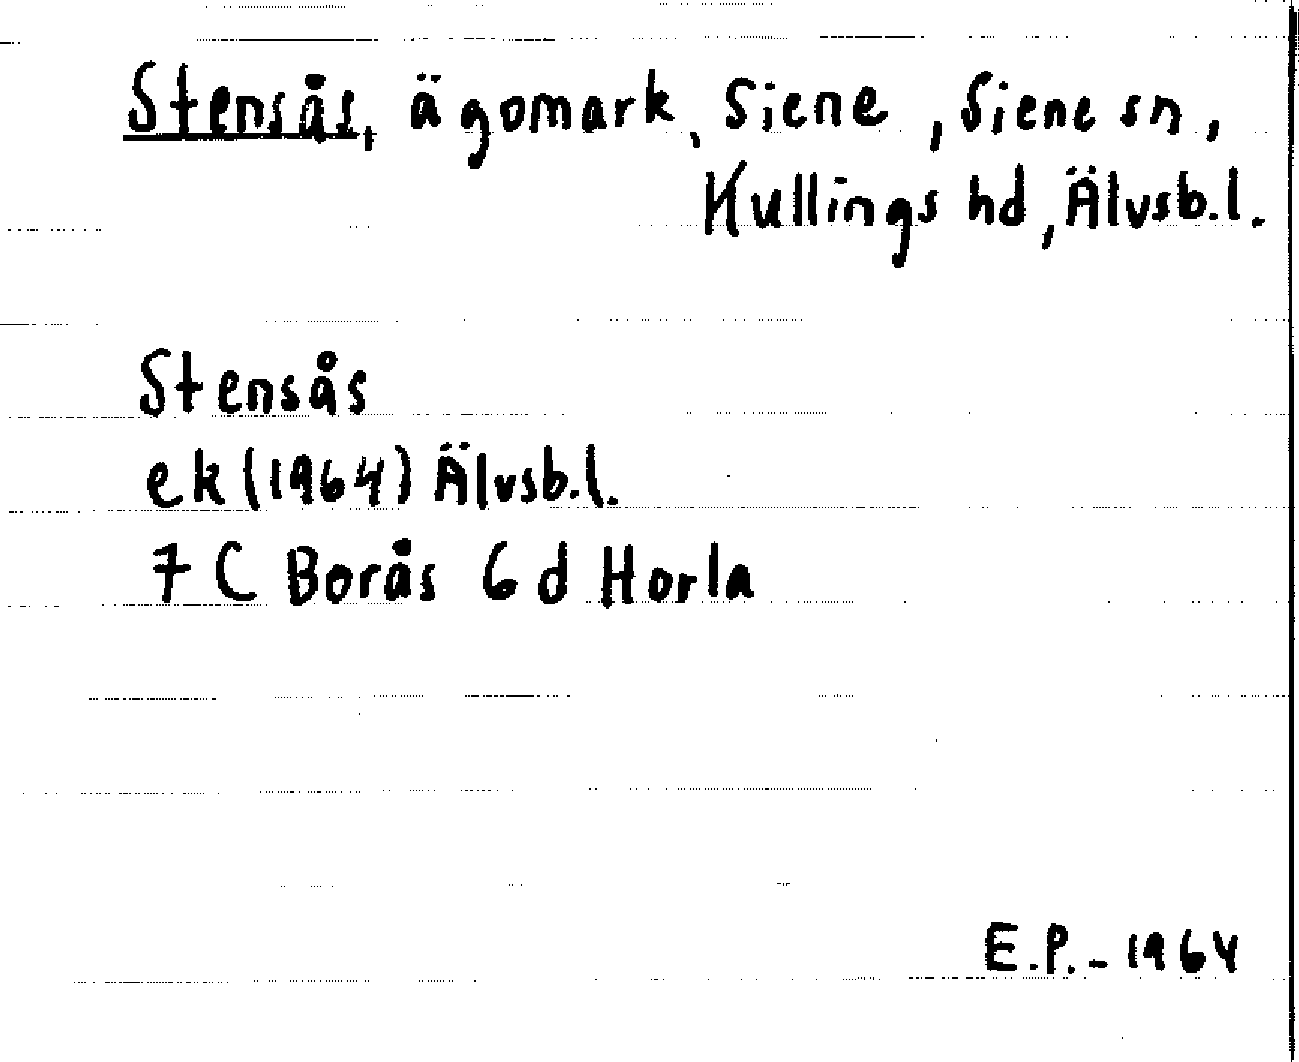 Stensås, ägomark, Siene, Siene sn,
Kullings hd, Älvsb.l.
Stensås
ek (1964) Älvsb.l.
7 C Borås 6 d Horla
E.P.-1964